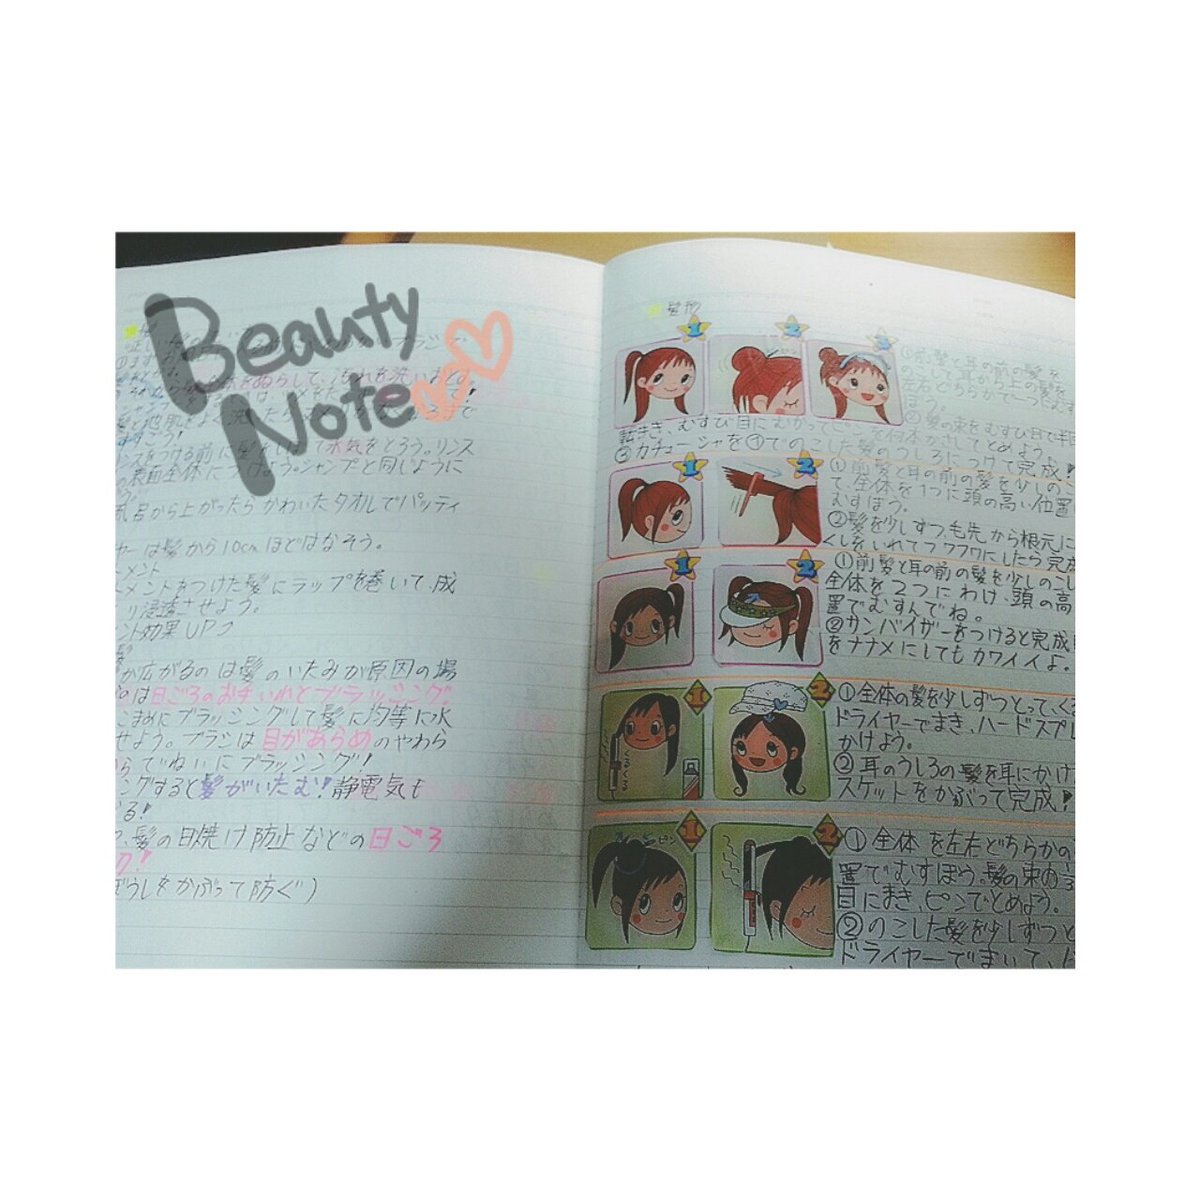 Beauty
Note
をぬらして、汚れを洗いおとo
水気をとろう。リンス
の表面全体につけよう。シャンプーと同じように
呂から上がったらかわいたタオルでパッティ
ヤーは髪から10cmほどはなそう。
メント
メントをつけた髪にラップを巻いて、成
り浸透させよう。
ント効果UP
髪
が広がるのは髪のいたみが原因の場
は日ごろのお手いれとブラッシング。
こまめにブラッシングして髪に均等に水
せよう。ブラシは目があらめのやわら
らでていねいにブラッシング!
ングすると髪がいたむ!静電気も
る!
、髪の日焼け防止などの日ごろ
!
ぼうしをかぶって防ぐ)
髪形
1 2 3
①前髪と耳の前の髪を
のこして、耳から上の髪を
左右どちらかで一つにむす
ぼう。
②髪の束をむすび目で半回
転まき、むすび目にむかってピンを何本かさしてとめよう。
③カチューシャを①でのこした髪のうしろにつけて完成!
1 2
①前髪と耳の前の髪を少しのこ
て、全体を1つに頭の高い位置
むすぼう。
②髪を少しずつ、毛先から根元に
くしをいれてフワフワにしたら完成
1 2
①前髪と耳の前の髪を少しのこし
全体を2つにわけ、頭の高
置でむすんでね。
②サンバイザーをつけると完成!
をナナメにしてもカワイイよ。
1 2
くるくる
①全体の髪を少しずつとって、くる
ドライヤーでまき、ハードスプレ
かけよう。
②耳のうしろの髪を耳にかけ
スケットをかぶって完成!
1 2
ピン
①全体を左右どちらかの
置でむすぼう。髪の束の1/3
目にまき、ピンでとめよう。
②のこした髪を少しずつと
ドライヤーでまいて、ハ